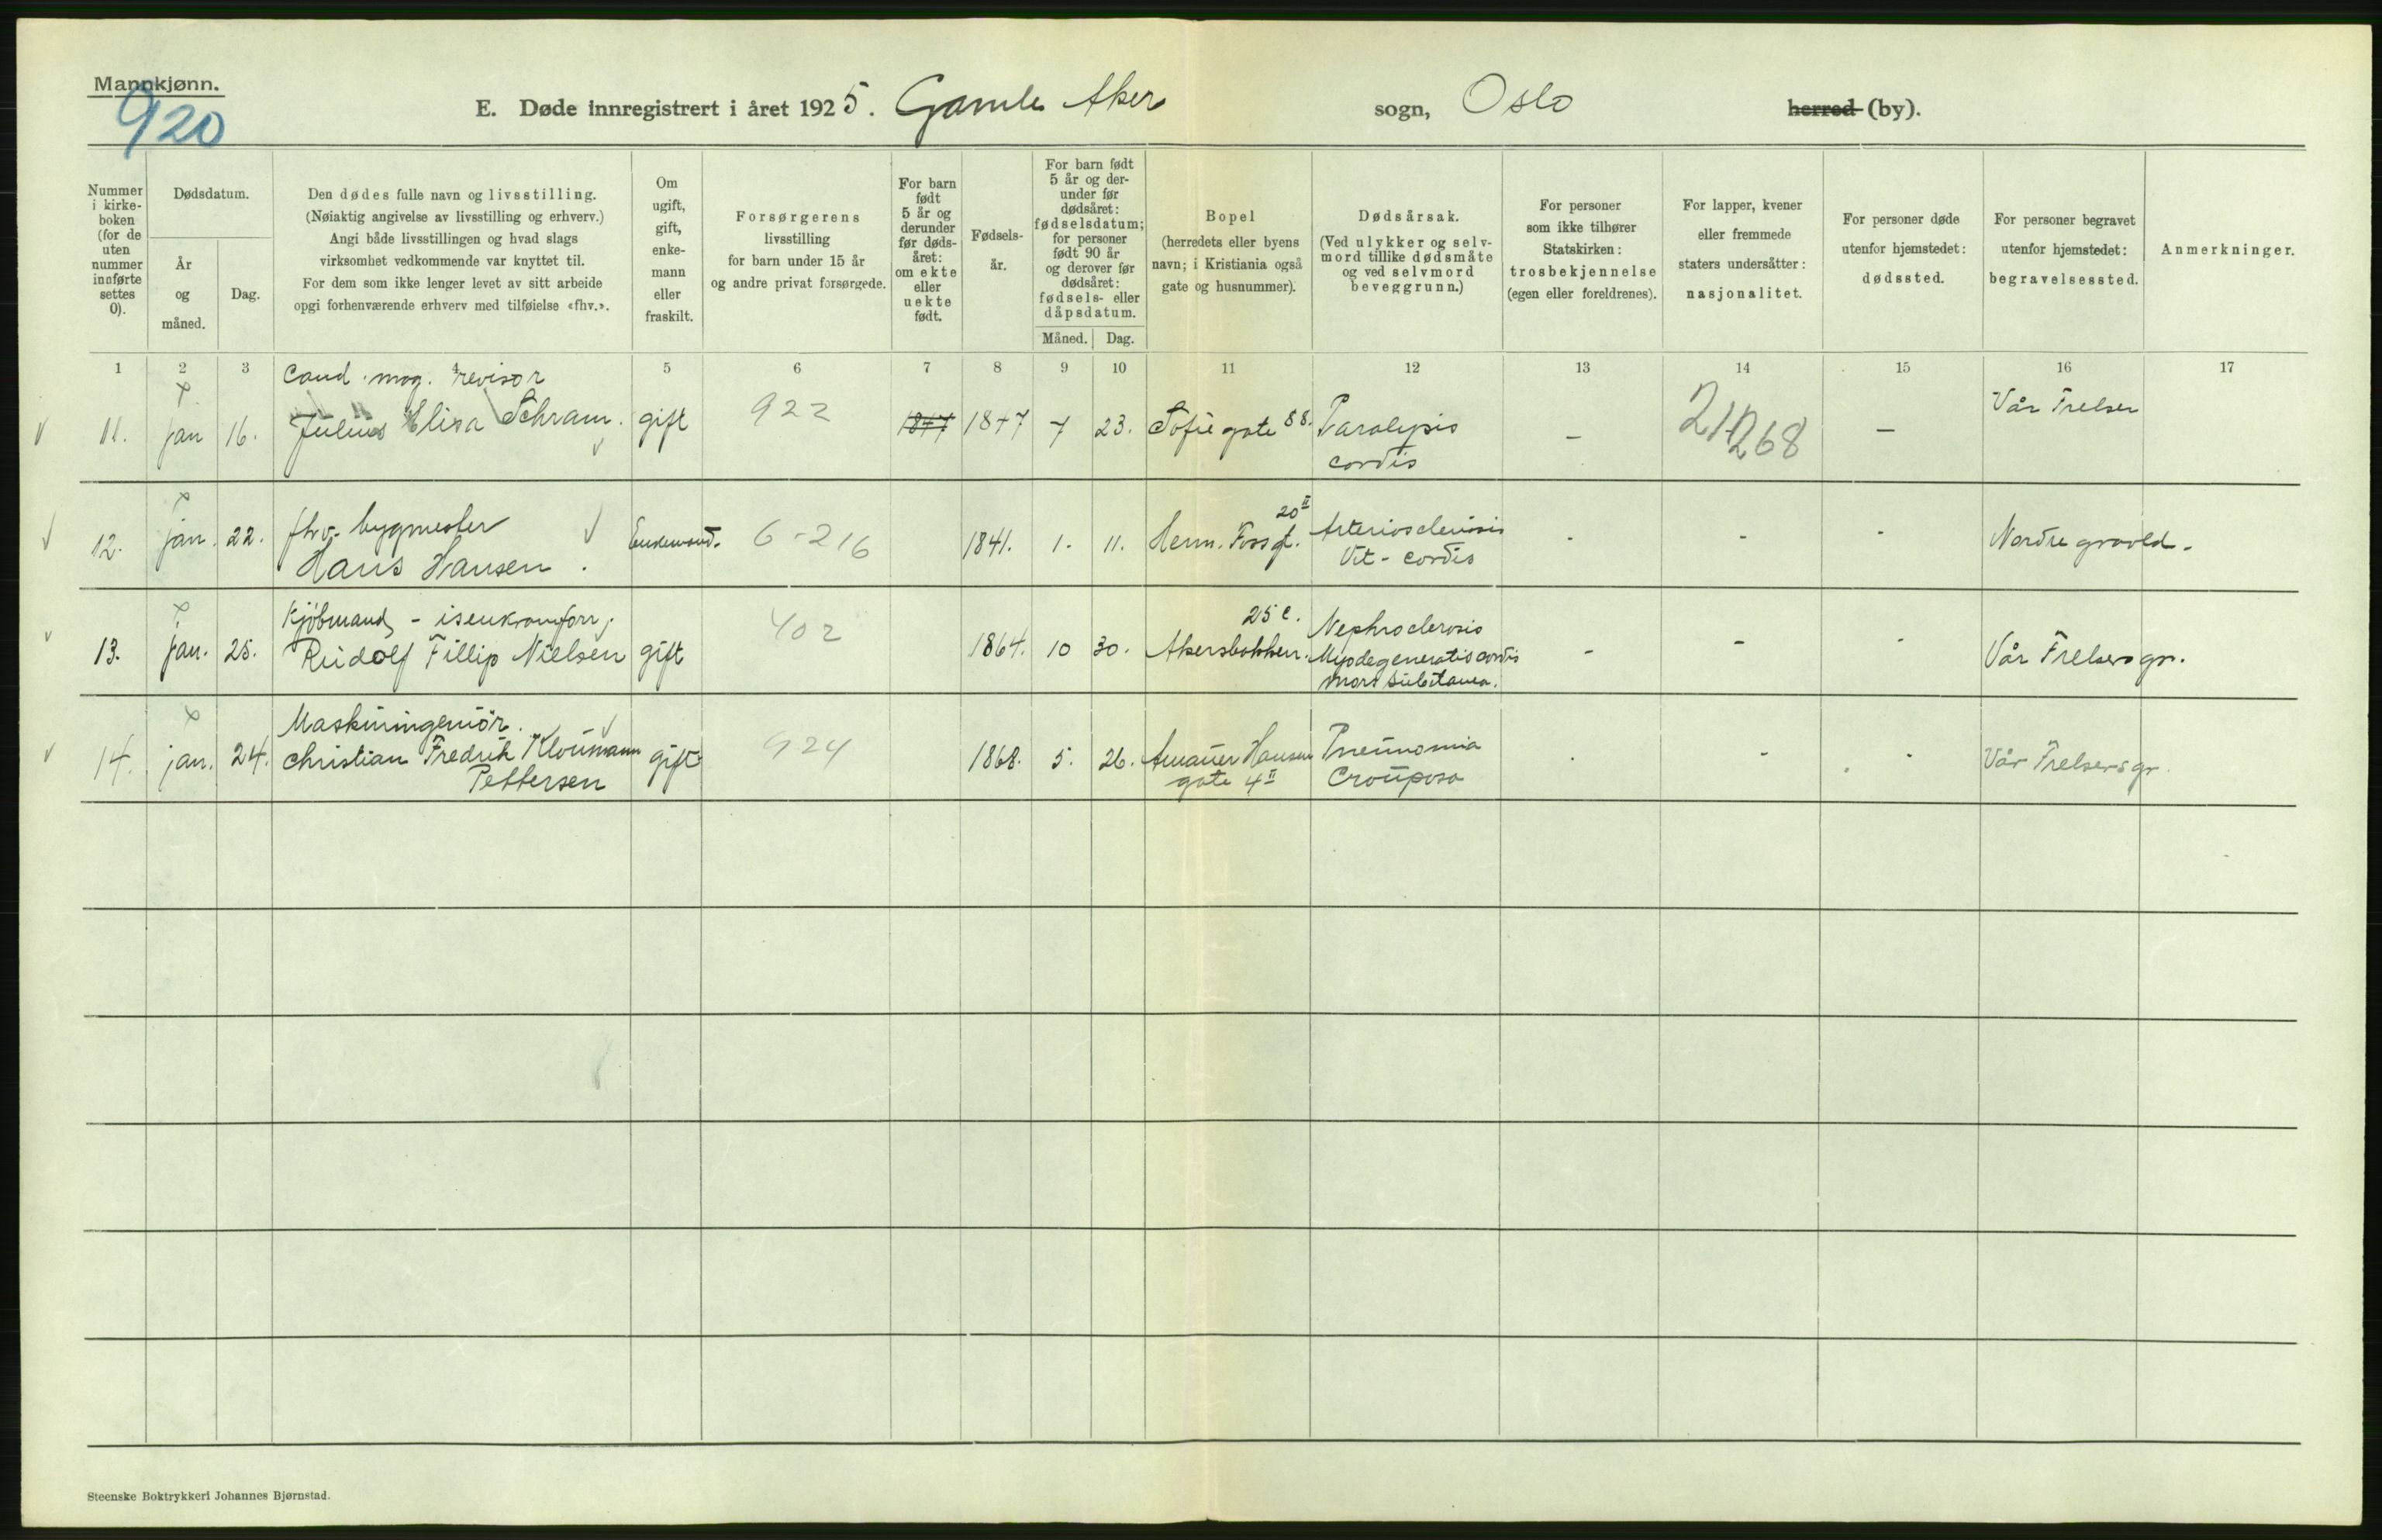 Mannkjønn.
920
E. Døde innregistrert i året 1925. Gamle Aker sogn, Oslo herred (by).
Nummer i kirke-boken (for de uten nummer innførte settes 0).
Dødsdatum.
År og måned.
Dag.
Den dødes fulle navn og livsstilling.
(Nøiaktig angivelse av livsstilling og erhverv.)
Angi både livsstillingen og hvad slags
virksomhet vedkommende var knyttet til.
For dem som ikke lenger levet av sitt arbeide
opgi forhenværende erhverv med tilføielse «fhv.».
Om ugift, gift, enke-mann eller fraskilt.
Forsørgerens
livsstilling
for barn under 15 år
og andre privat forsørgede.
For barn født 5 år og derunder før døds-året: om ekte eller uekte født.
Fødsels-år.
For barn født 5 år og der-under før dødsåret: fødselsdatum; for personer født 90 år og derover før dødsåret: fødsels- eller dåpsdatum.
Måned. Dag.
Bopel
(herredets eller byens
navn; i Kristiania også
gate og husnummer).
Dødsårsak.
(Ved ulykker og selv-
mord tillike dødsmåte
og ved selvmord
beveggrunn.)
For personer
som ikke tilhører
Statskirken:
trosbekjennelse
(egen eller foreldrenes).
For lapper, kvener
eller fremmede
staters undersåtter:
nasjonalitet.
For personer døde
utenfor hjemstedet:
dødssted.
For personer begravet
utenfor hjemstedet:
begravelsessted.
Anmerkninger.
1 2 3 4 5 6 7 8 9 10 11 12 13 14 15 16 17
cand. mag. revisor
11. jan 16. Julius Elisa Schram. gift 922 1847 1847 7 23. Sofie gate 88. Paralysis cordis - 21268 - Vår Frelser
fhv. bygmester
12. jan. 22. Hans Hansen. Enkemand. 6-216 1841. 1. 11. Herm. Foss gt. 20 II Arteriosclerosis Vit-cordis - - - Nordre gravld.
Kjöbmand, - isenkramforr.
13. jan. 25. Rudolf Fillip Nielsen gift 402 1864. 10 30. Akersbakken. 25 c. Nephrosclerosis Myodegeneratio cordis mors subitanea. - - - Vår Frelsers gr.
Maskiningeniör.
14. jan. 24. Christian Fredrik Kloumann Pettersen gift 924 1868. 5. 26. Amauer Hansen gate 4 II Pneumonia Crouposa . - - Vår Frelsers gr.
Steenske Boktrykkeri Johannes Bjørnstad.